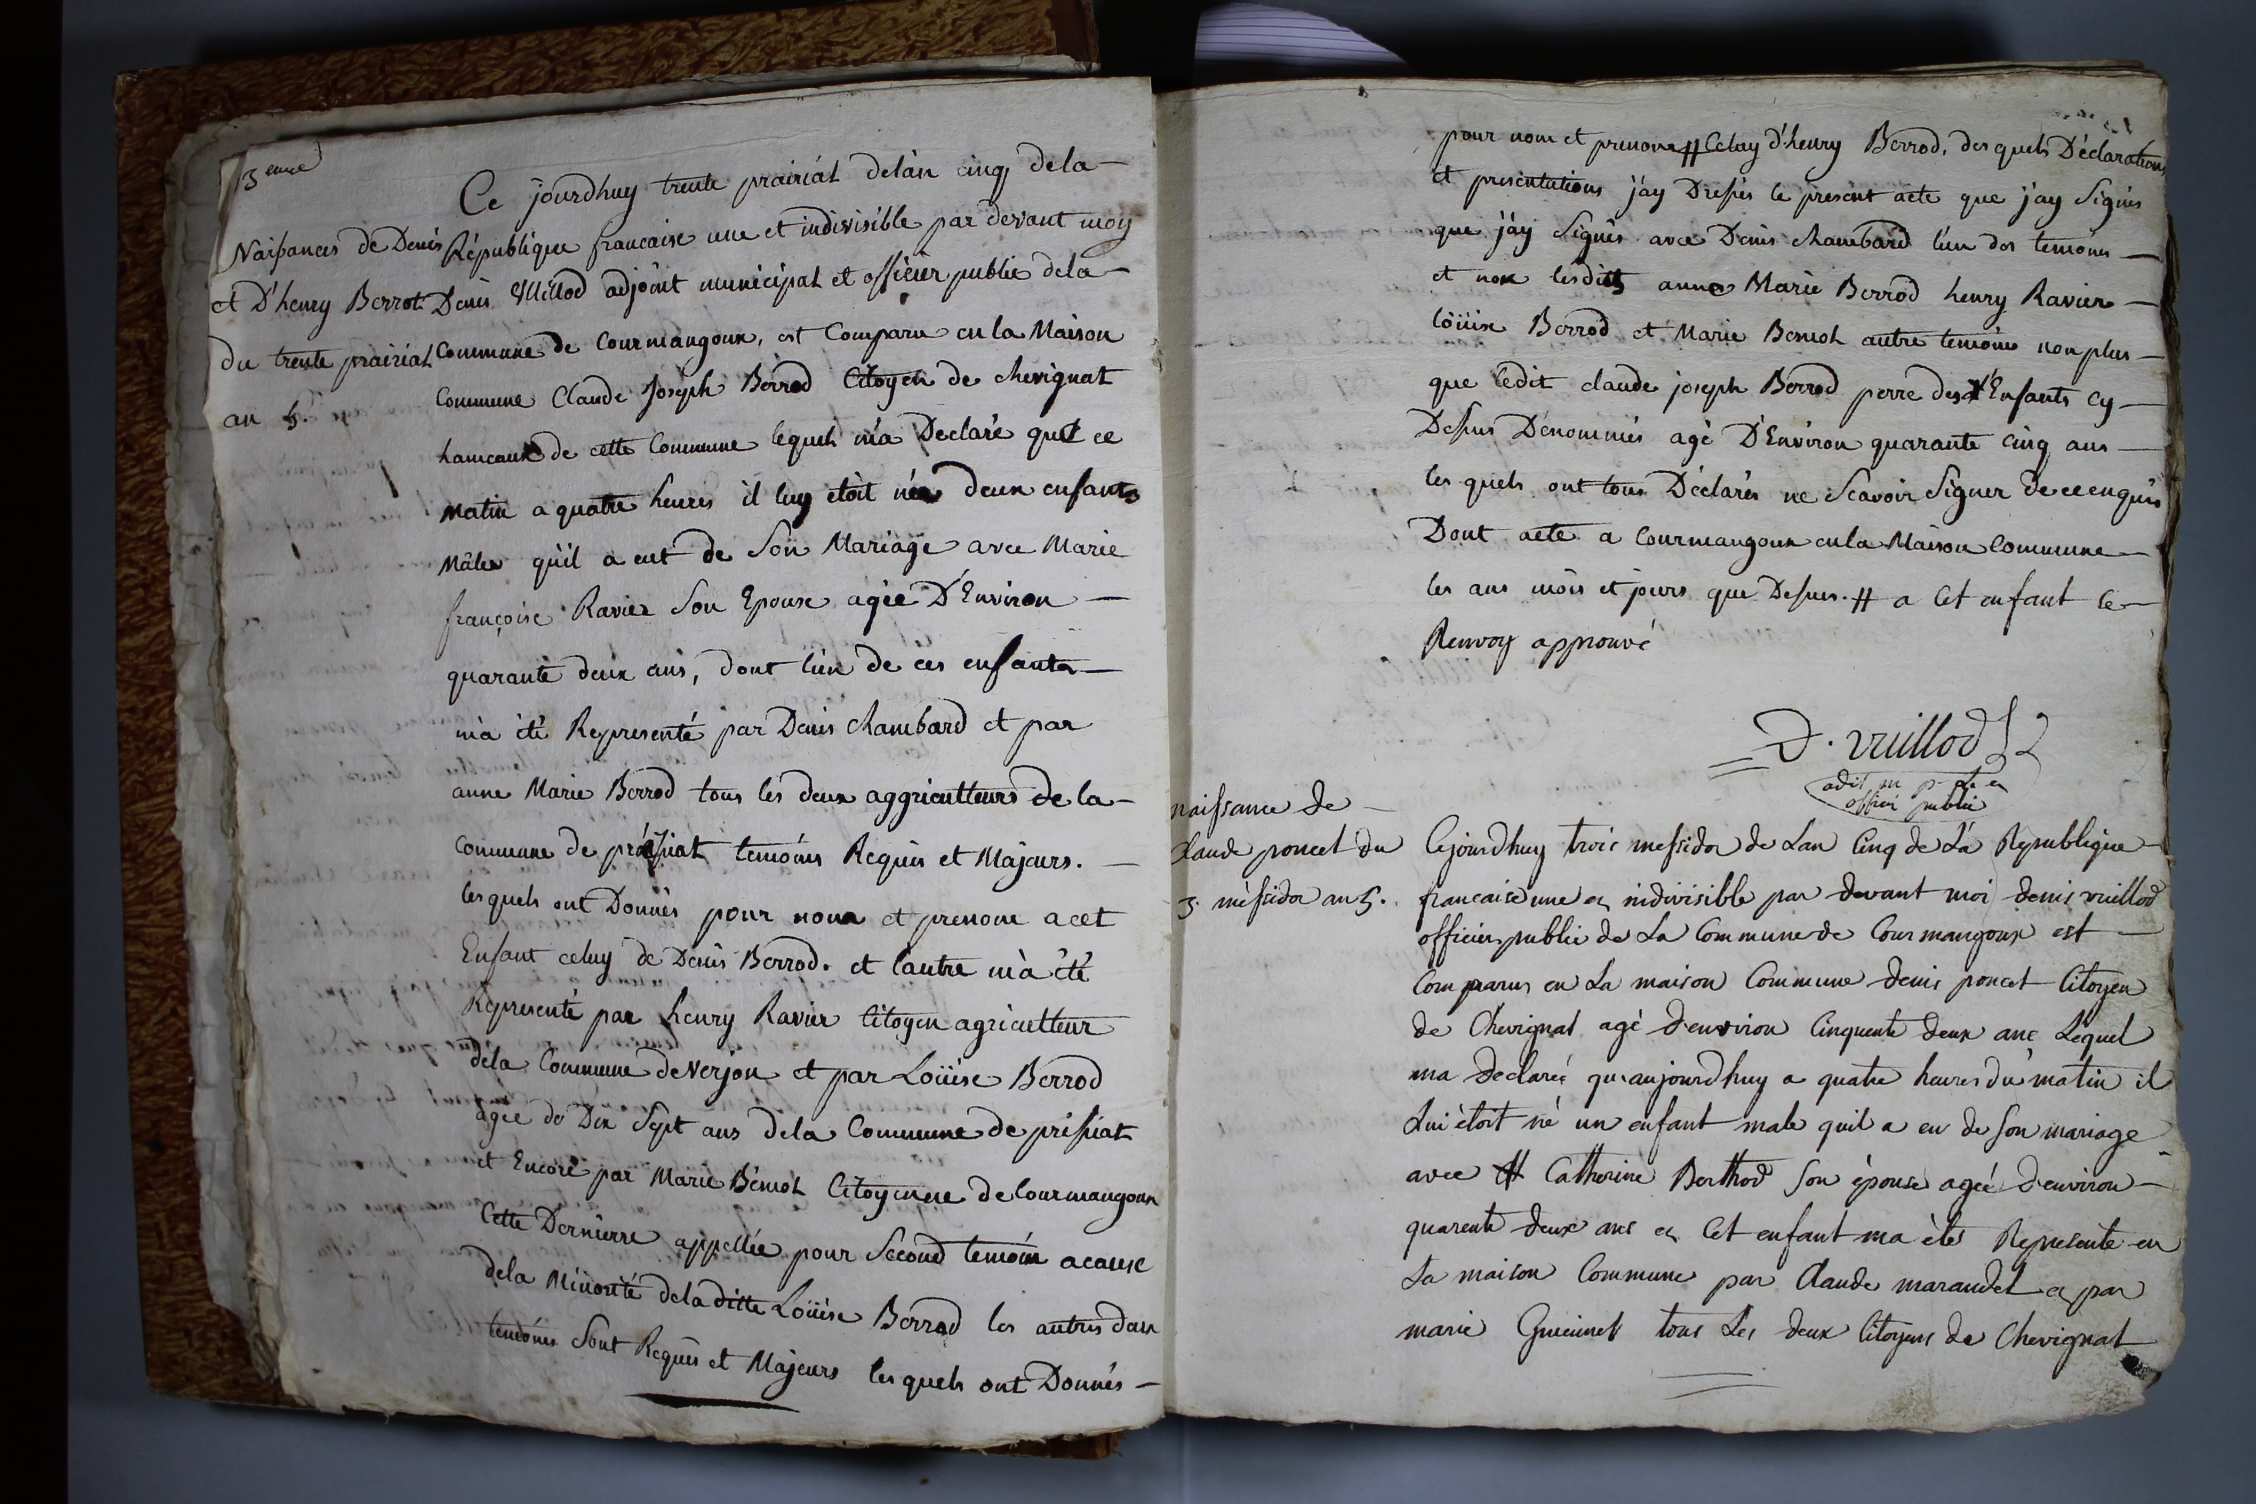 3eme
Naissances de Denis
et D'henry Berrot
du trente prairial
an 5.
Ce jourdhuy trente prairial delàn cinq dela
République francaise une et indivisible par devant moy
Denis Vuillod adjoint municipal et officier public dela
Commune de Courmangoux, est Comparu en la Maison
Commune Claude Joseph Berrod Citoyen de chevignat
hameaux de cette Commune lequel m'a Declaré que ce
matin a quatre heures il luy étoit nés deux enfants
mâles qu'il a eut de Son Mariage avec Marie
françoise Ravier Son Epouse agée D'Environ
quarante deux ans, dont l'un de ces enfants
m'a été Representé par Denis Chambard et par
anne Marie Berrod tous les deux aggriculteurs de la
Commune de préssiat temoins Requis et Majeurs.
lesquels ont Donnés pour nom et prenom a cet
Enfant celuy de Denis Berrod. et l'autre m'à été
Representé par henry Ravier Citoyen agriculteur
dela Commune de verjon et par Loüise Berrod
agée de Dix Sept ans dela Commune de prissiat
et Encore par Marie Beniot Citoyenne de Courmangoux
Cette Derniere appellée pour Second temoin acause
dela Minorité deladitte Loüise Berrod les autres deux
temoins Sont Requis et Majeurs lesquels ont Donnés
pour nom et prenom # Celuy d'henry Berrod, des quels Déclarations
et presentations j'ay Dressés le present acte que j'ay Signés
que j'ay Signés avec Denis Chambard l'un des temoins
et non lesdits anne Marie Berrod henry Ravier
loüise Berrod et Marie Beniot autre temoins non plus
que ledit claude joseph Berrod perre des d'Enfants cy
Dessus Dénommés agé D'Environ quarante cinq ans
les quels ont tous Déclarés ne Scavoir Signer de ce enquis
Dont acte a Courmangoux en la Maison Commune
les ans mois et jours que Dessus. # a Cet enfant le
Renvoy approuvé
D. vuillod
officier public
naissance de
Claude poncet du
3. messidor an 5.
Cejourdhuy trois messidor de Lan Cinq de La Republique
francaise une et indivisible par devant moi denis vuillod
officier public de La Commune de Courmangoux est
Comparus en La maison Commune denis poncet Citoyen
de Chevignat agé d'environ Cinquente deux ans Lequel
ma declareé qu'aujourdhuy a quatre heures du matin il
Lui étoit né un enfant male quil a eu de Son mariage
avec # Catherine Berthod Son épouse agée d'environ
quarente deux ans et Cet enfant ma été Represente en
La maison Commune par Claude marandet et par
marie Guiennet tous Les deux Citoyens de Chevignat